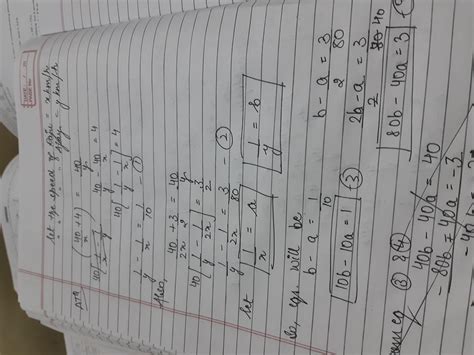 DATE
PAGE NO.
Let the speed of Rafiq = x km/h
" " " " = y km/h
ATQ
(40/x + 4) = 40/y
40/y - 40/x = 4
40[1/y - 1/x] = 4
1/y - 1/x = 1/10 - ①
Also,
40/2x + 3/2 = 40/y
40[1/y - 1/2x] = 3/2
1/y - 1/2x = 3/80 - ②
Let [1/x = a] [1/y = b]
So, eqn. will be
b - a = 1/10
[10b - 10a = 1] ③
b - a/2 = 3/80
2b - a/2 = 3/80 40
[80b - 40a = 3]
eq ③
40b - 40a = 40
- 80b + 40a = -3